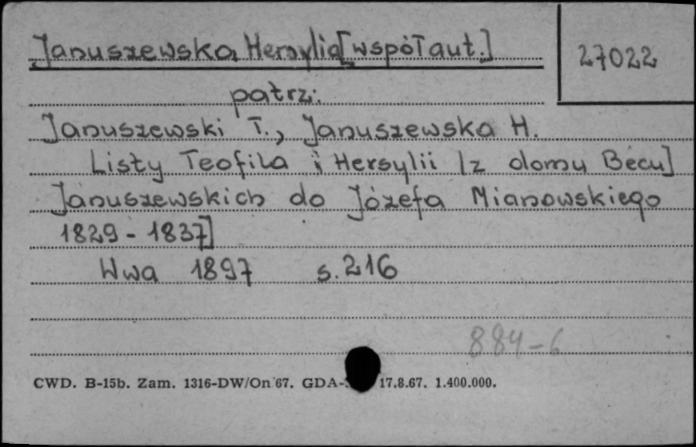 Januszewska Hersylia [współaut.]
27022
patrz:
Januszewski T., Januszewska H.
Listy Teofila i Hersylii [z domu Bécu]
Januszewskich do Józefa Mianowskiego
1829 - 1837]
Wwa 1897 s. 216
884-6
CWD. B-15b. Zam. 1316-DW/On 67. GDA- 17.8.67. 1.400.000.